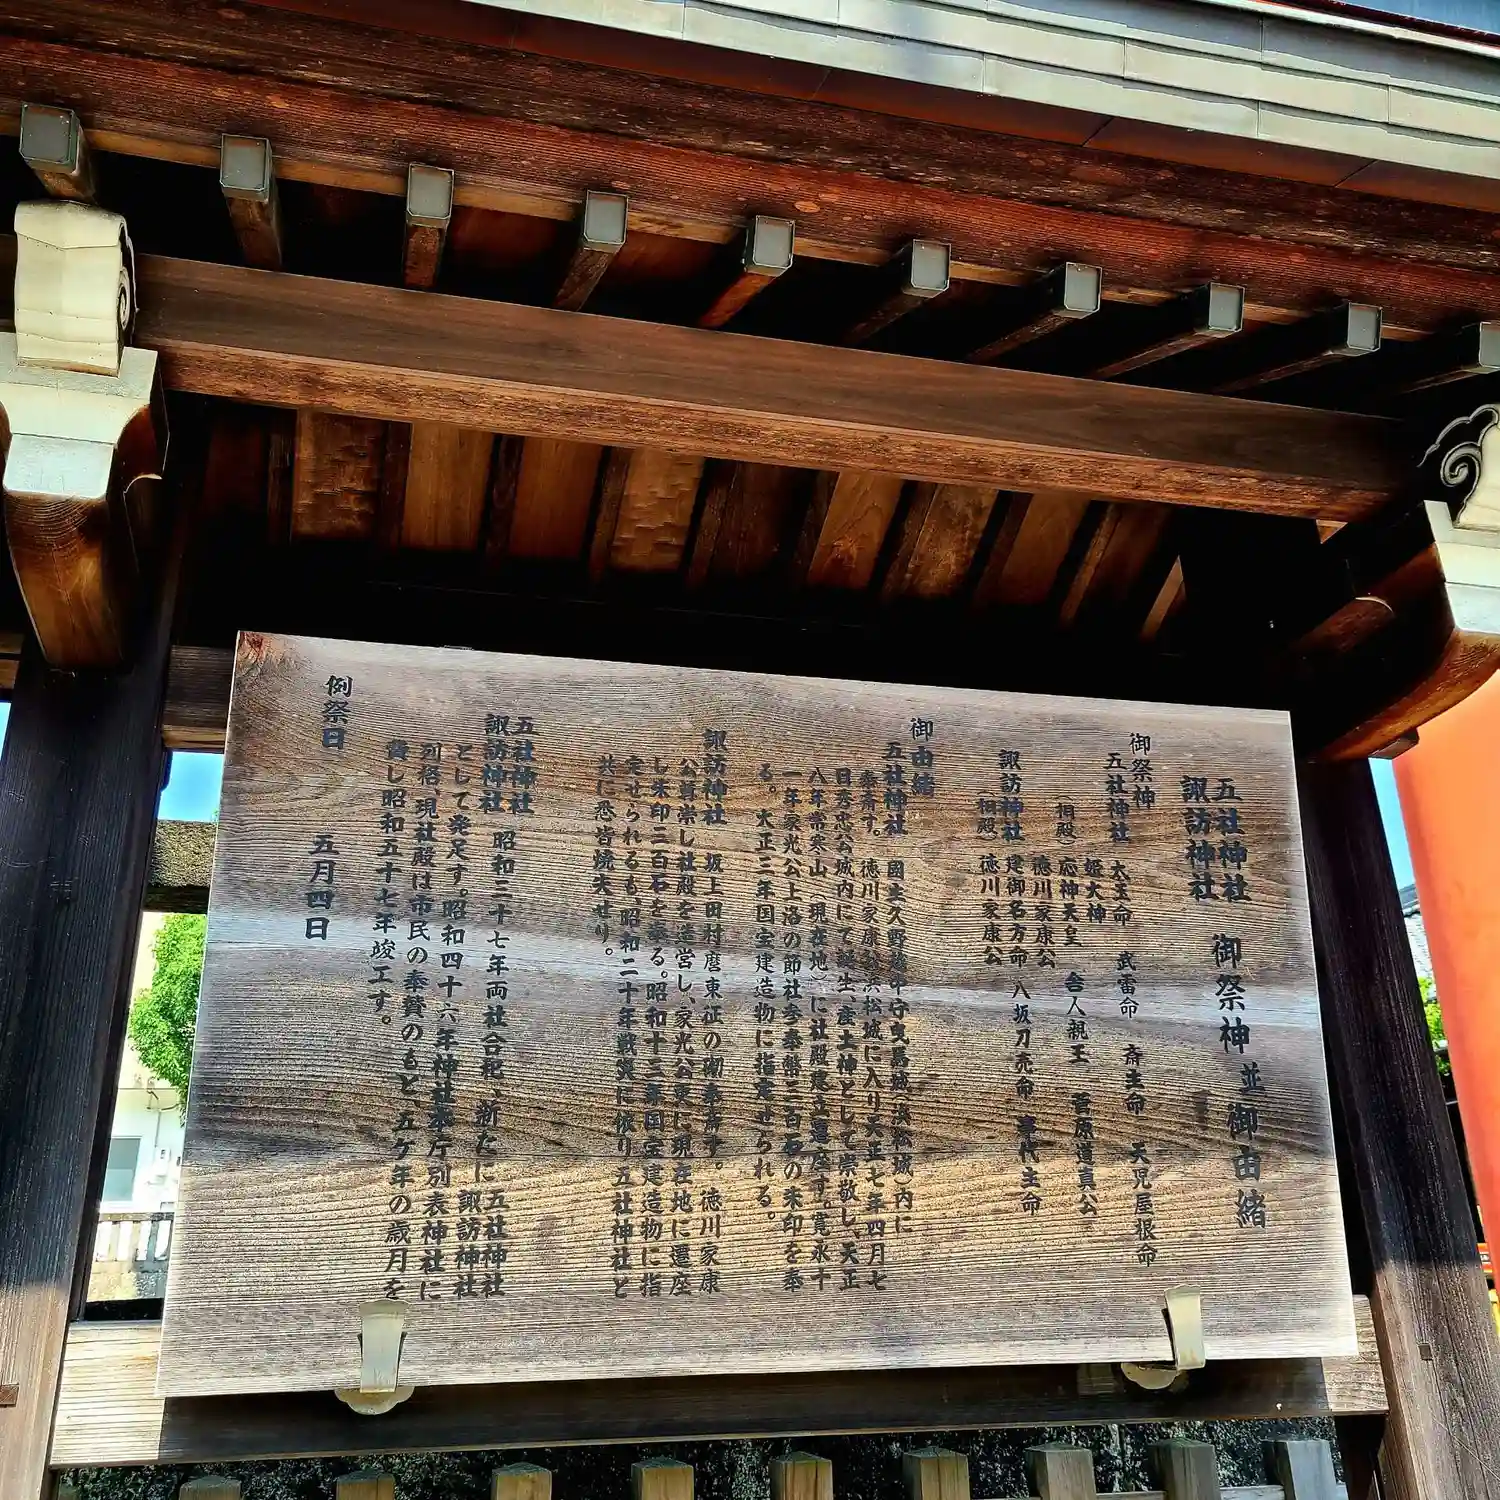 五社神社
諏訪神社 御祭神並御由緒
御祭神
五社神社 太玉命 武雷命 斎主命 天児屋根命
姫大神
(相殿) 応神天皇 舎人親王 菅原道真公
徳川家康公
諏訪神社 建御名方命 八坂刀売命 事代主命
(相殿) 徳川家康公
御由緒
五社神社 国主久野越中守曳馬城(浜松城)内に
奉斎す。徳川家康公浜松城に入り天正七年四月七
日秀忠公城内にて誕生、産土神として崇敬し、天正
八年常寒山、現在地、に社殿建立遷座す。寛永十
一年家光公上洛の節社参奉幣三百石の朱印を奉
る。大正三年国宝建造物に指定せられる。
諏訪神社 坂上田村麿東征の砌奉斎す。徳川家康
公尊崇し社殿を造営し、家光公更に現在地に遷座
し朱印三百石を奉る。昭和十三年国宝建造物に指
定せられるも、昭和二十年戦災に依り五社神社と
共に悉皆焼失せり。
五社神社
諏訪神社 昭和三十七年両社合祀、新たに五社神社
諏訪神社
として発足す。昭和四十六年神社本庁別表神社に
列格、現社殿は市民の奉賛のもと、五ヶ年の歳月を
費し昭和五十七年竣工す。
例祭日 五月四日